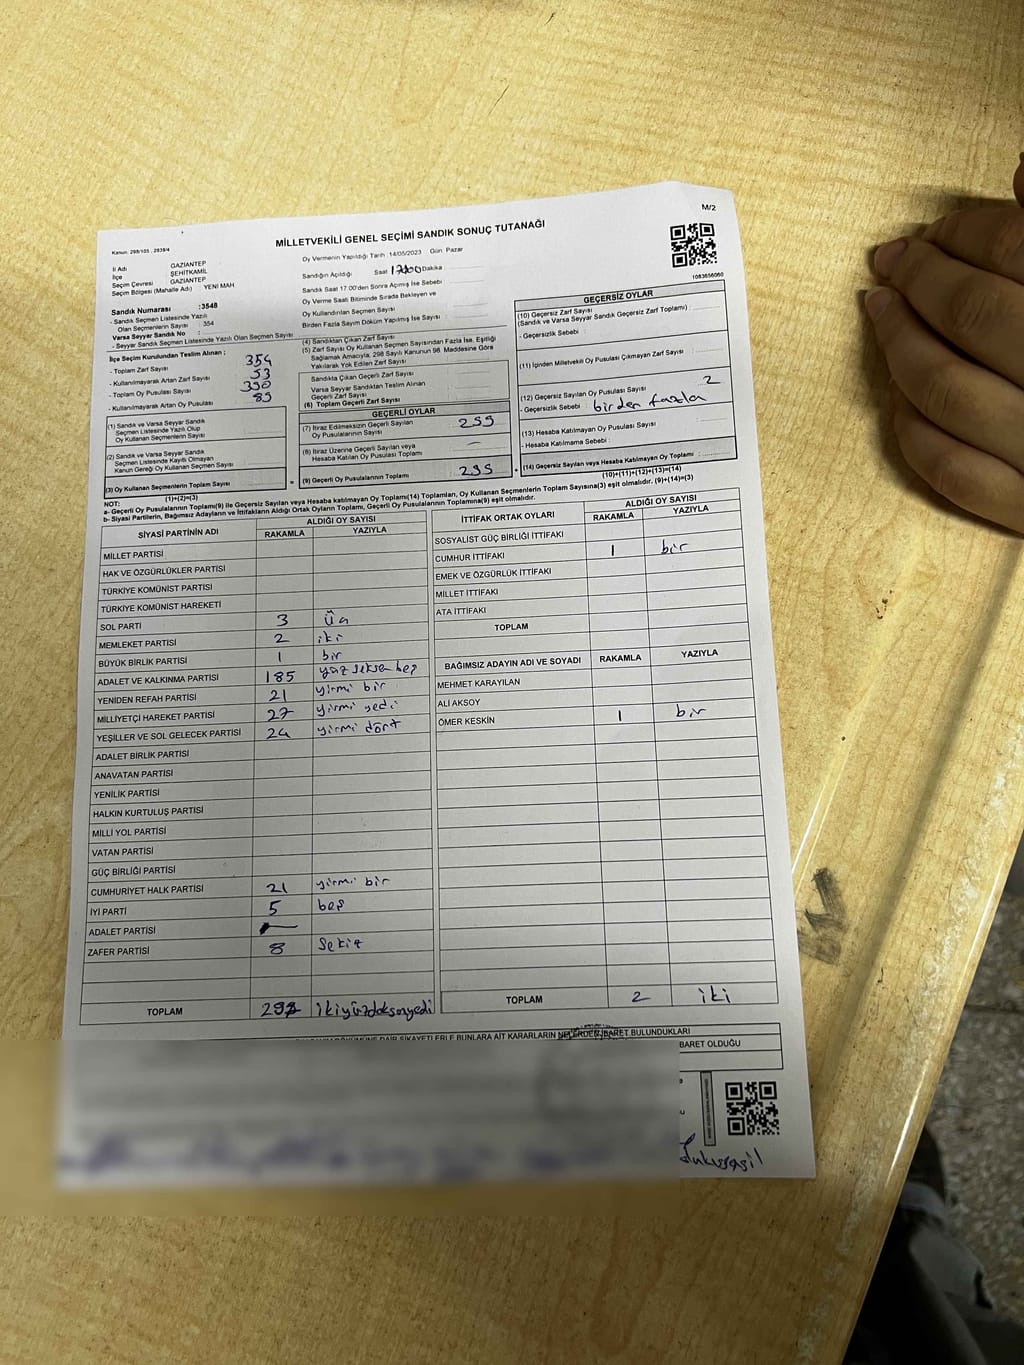 M/2
Kanun: 298/105 , 2839/4
MİLLETVEKİLİ GENEL SEÇİMİ SANDIK SONUÇ TUTANAĞI
1083656060
İl Adı GAZİANTEP
İlçe ŞEHİTKAMİL
Seçim Çevresi GAZİANTEP
Seçim Bölgesi (Mahalle Adı) YENİ MAH
Sandık Numarası :3548
- Sandık Seçmen Listesinde Yazılı
Olan Seçmenlerin Sayısı : 354
Varsa Seyyar Sandık No :
- Seyyar Sandık Seçmen Listesinde Yazılı Olan Seçmen Sayısı
Oy Vermenin Yapıldığı Tarih :14/05/2023 Gün: Pazar
Sandığın Açıldığı Saat 17:00 Dakika
Sandık Saat 17.00'den Sonra Açılmış İse Sebebi
Oy Verme Saati Bitiminde Sırada Bekleyen ve
Oy Kullandırılan Seçmen Sayısı
Birden Fazla Sayım Döküm Yapılmış İse Sayısı
İlçe Seçim Kurulundan Teslim Alınan ;
- Toplam Zarf Sayısı 354
- Kullanılmayarak Artan Zarf Sayısı 53
- Toplam Oy Pusulası Sayısı
- Kullanılmayarak Artan Oy Pusulası
(1) Sandık ve Varsa Seyyar Sandık
Seçmen Listesinde Yazılı Olup
Oy Kullanan Seçmenlerin Sayısı
(2) Sandık ve Varsa Seyyar Sandık
Seçmen Listesinde Kayıtlı Olmayan
Kanun Gereği Oy Kullanan Seçmen Sayısı
(3) Oy Kullanan Seçmenlerin Toplam Sayısı
(1)+(2)=(3)
(4) Sandıktan Çıkan Zarf Sayısı
(5) Zarf Sayısı Oy Kullanan Seçmen Sayısından Fazla İse, Eşitliği
Sağlamak Amacıyla, 298 Sayılı Kanunun 98. Maddesine Göre
Yakılarak Yok Edilen Zarf Sayısı
Sandıkta Çıkan Geçerli Zarf Sayısı
Varsa Seyyar Sandıktan Teslim Alınan
Geçerli Zarf Sayısı
(6) Toplam Geçerli Zarf Sayısı
GEÇERLİ OYLAR
(7) İtiraz Edilmeksizin Geçerli Sayılan
Oy Pusulalarının Sayısı
(8) İtiraz Üzerine Geçerli Sayılan veya
Hesaba Katılan Oy Pusulası Toplamı —
(9) Geçerli Oy Pusulasının Toplamı
GEÇERSİZ OYLAR
(10) Geçersiz Zarf Sayısı
(Sandık ve Varsa Seyyar Sandık Geçersiz Zarf Toplamı) :
- Geçersizlik Sebebi :
(11) İçinden Milletvekili Oy Pusulası Çıkmayan Zarf Sayısı
(12) Geçersiz Sayılan Oy Pusulası Sayısı 2
- Geçersizlik Sebebi : birden fazla
(13) Hesaba Katılmayan Oy Pusulası Sayısı
- Hesaba Katılmama Sebebi :
(14) Geçersiz Sayılan veya Hesaba Katılmayan Oy Toplamı
(10)+(11)+(12)+(13)=(14)
NOT:
a- Geçerli Oy Pusulalarının Toplamı(9) ile Geçersiz Sayılan veya Hesaba katılmayan Oy Toplamı(14) Toplamları, Oy Kullanan Seçmenlerin Toplam Sayısına(3) eşit olmalıdır. (9)+(14)=(3)
b- Siyasi Partilerin, Bağımsız Adayların ve İttifakların Aldığı Ortak Oyların Toplamı, Geçerli Oy Pusulalarının Toplamına(9) eşit olmalıdır.
SİYASİ PARTİNİN ADI ALDIĞI OY SAYISI
RAKAMLA YAZIYLA
MİLLET PARTİSİ
HAK VE ÖZGÜRLÜKLER PARTİSİ
TÜRKİYE KOMÜNİST PARTİSİ
TÜRKİYE KOMÜNİST HAREKETİ
SOL PARTİ 3 Üç
MEMLEKET PARTİSİ 2 iki
BÜYÜK BİRLİK PARTİSİ 1 bir
ADALET VE KALKINMA PARTİSİ 185 yüz seksen beş
YENİDEN REFAH PARTİSİ 21 yirmi bir
MİLLİYETÇİ HAREKET PARTİSİ 27 yirmi yedi
YEŞİLLER VE SOL GELECEK PARTİSİ 24 yirmi dört
ADALET BİRLİK PARTİSİ
ANAVATAN PARTİSİ
YENİLİK PARTİSİ
HALKIN KURTULUŞ PARTİSİ
MİLLİ YOL PARTİSİ
VATAN PARTİSİ
GÜÇ BİRLİĞİ PARTİSİ
CUMHURİYET HALK PARTİSİ 21 yirmi bir
İYİ PARTİ 5 beş
ADALET PARTİSİ —
ZAFER PARTİSİ 8 Sekiz
TOPLAM 297 ikiyüzdoksanyedi
İTTİFAK ORTAK OYLARI ALDIĞI OY SAYISI
RAKAMLA YAZIYLA
SOSYALİST GÜÇ BİRLİĞİ İTTİFAKI
CUMHUR İTTİFAKI 1 bir
EMEK VE ÖZGÜRLÜK İTTİFAKI
MİLLET İTTİFAKI
ATA İTTİFAKI
TOPLAM
BAĞIMSIZ ADAYIN ADI VE SOYADI RAKAMLA YAZIYLA
MEHMET KARAYILAN
ALİ AKSOY
ÖMER KESKİN 1 bir
TOPLAM 2 iki
ŞİKAYETLERLE BUNLARA AİT KARARLARIN NELERDEN İBARET BULUNDUKLARI
BARET OLDUĞU